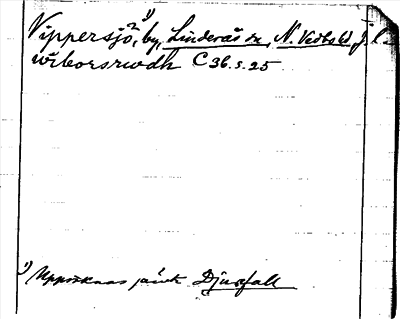 Vippersjö, ²⁾ by, ¹⁾ Linderås sn, N. Vedbo hd, J. l.
wiborsrwdh C 36. s. 25
¹⁾ Uppräknas jämte Djurfall